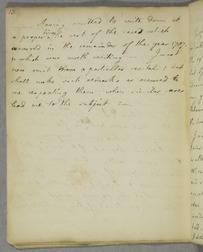 Having omitted to write down at
a proper time the rest of the cases which
occurred in the remainder of the year 1797,
& which was worth noting I must
now omit them a particular recital; but
shall make such remarks as occurred to
me respecting them, when similar cases
lead me to the subject